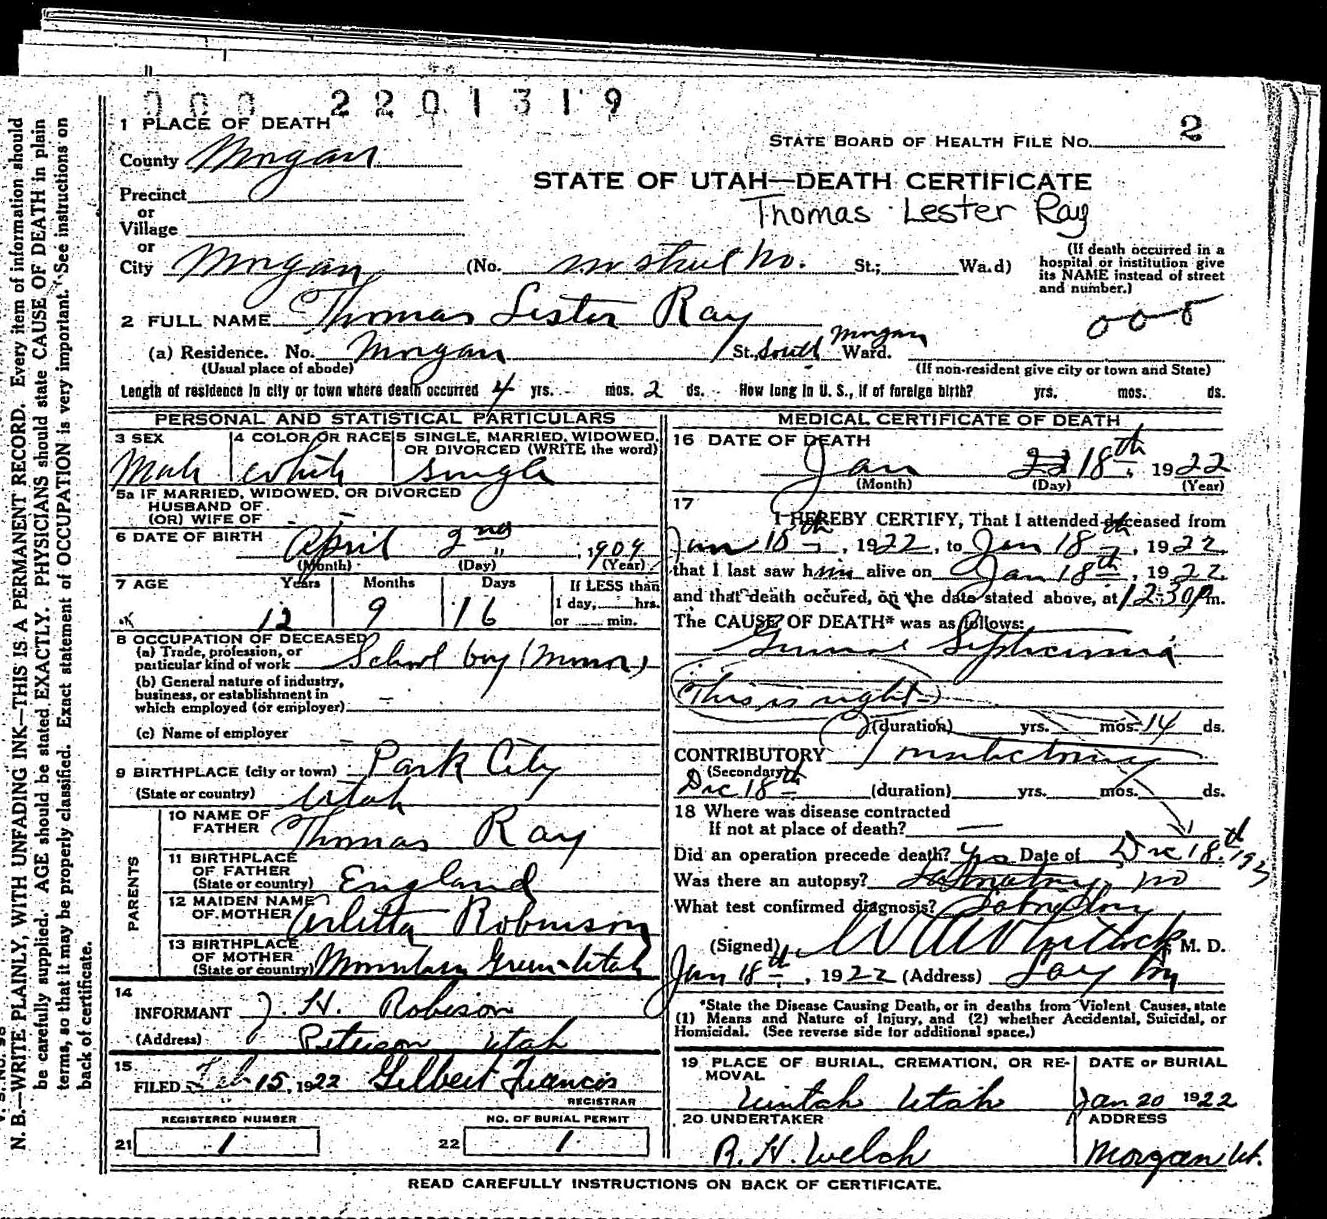 000 2201319
1 PLACE OF DEATH
STATE BOARD OF HEALTH FILE No. 2
County Morgan
STATE OF UTAH—DEATH CERTIFICATE
Thomas Lester Ray
Precinct
or
Village
or
City Morgan (No. no street No. St.; Ward)
(If death occurred in a hospital or institution give its NAME instead of street and number.)
2 FULL NAME Thomas Lester Ray
(a) Residence. No. Morgan St., South Morgan Ward.
(Usual place of abode) (If non-resident give city or town and State)
Length of residence in city or town where death occurred 4 yrs. mos. 2 ds. How long in U. S., if of foreign birth? yrs. mos. ds.
PERSONAL AND STATISTICAL PARTICULARS
3 SEX Male
4 COLOR OR RACE White
5 SINGLE, MARRIED, WIDOWED, OR DIVORCED (WRITE the word) Single
5a IF MARRIED, WIDOWED, OR DIVORCED
HUSBAND OF
(OR) WIFE OF
6 DATE OF BIRTH April 2nd, 1909
(Month) (Day) (Year)
7 AGE Years 12 Months 9 Days 16
If LESS than 1 day, hrs. or min.
8 OCCUPATION OF DECEASED
(a) Trade, profession, or particular kind of work School boy (Minor)
(b) General nature of industry, business, or establishment in which employed (or employer) -
(c) Name of employer
9 BIRTHPLACE (city or town) Park City
(State or country) Utah
PARENTS
10 NAME OF FATHER Thomas Ray
11 BIRTHPLACE OF FATHER (State or country) England
12 MAIDEN NAME OF MOTHER Arletta Robinson
13 BIRTHPLACE OF MOTHER (State or country) Mountain Green Utah
14
INFORMANT J. H. Robison
(Address) Peterson Utah
15
FILED Feb 15, 1922 Gilbert Francis
REGISTRAR
REGISTERED NUMBER
21 1
NO. OF BURIAL PERMIT
22 1
MEDICAL CERTIFICATE OF DEATH
16 DATE OF DEATH
Jan 22 18th, 1922
(Month) (Day) (Year)
17
I HEREBY CERTIFY, That I attended deceased from
Jan 18th, 1922, to Jan 18th, 1922
that I last saw him alive on Jan 18th, 1922
and that death occured, on the date stated above, at 12:30 Pm.
The CAUSE OF DEATH* was as follows:
Septicimia
(This is right)
(duration) yrs. mos. 14 ds.
CONTRIBUTORY
(Secondary)
Dec 18th (duration) yrs. mos. ds.
18 Where was disease contracted
If not at place of death? —
Did an operation precede death? Yes Date of Dec 18th 192
Was there an autopsy? no
What test confirmed diagnosis?
(Signed) M. D.
Jan 18th, 1922 (Address)
*State the Disease Causing Death, or in deaths from Violent Causes, state
(1) Means and Nature of Injury, and (2) whether Accidental, Suicidal, or
Homicidal. (See reverse side for additional space.)
19 PLACE OF BURIAL, CREMATION, OR REMOVAL
Uintah Utah
DATE OF BURIAL
Jan 20 1922
20 UNDERTAKER
R. H. Welch
ADDRESS
Morgan Ut.
READ CAREFULLY INSTRUCTIONS ON BACK OF CERTIFICATE.
N. B.—WRITE PLAINLY, WITH UNFADING INK—THIS IS A PERMANENT RECORD. Every item of information should
be carefully supplied. AGE should be stated EXACTLY. PHYSICIANS should state CAUSE OF DEATH in plain
terms, so that it may be properly classified. Exact statement of OCCUPATION is very important. See instructions on
back of certificate.